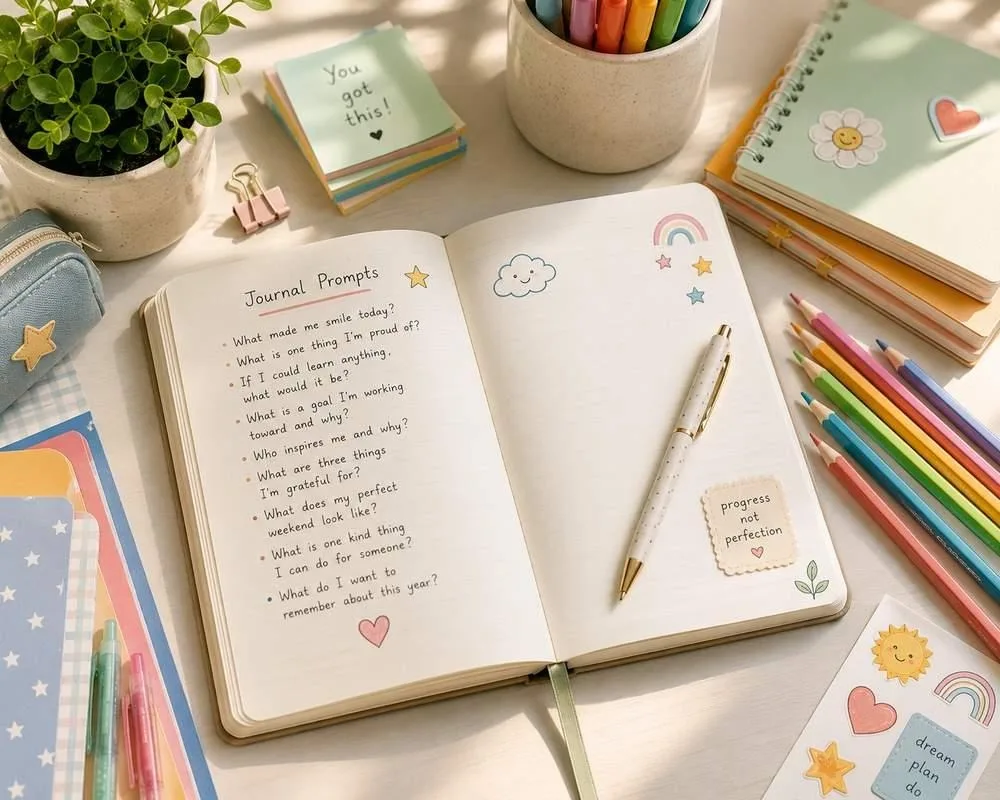 You
got
this!
Journal Prompts
What made me smile today?
What is one thing I'm proud of?
If I could learn anything,
what would it be?
What is a goal I'm working
toward and why?
Who inspires me and why?
What are three things
I'm grateful for?
What does my perfect
weekend look like?
What is one kind thing
I can do for someone?
What do I want to
remember about this year?
progress
not
perfection
dream
plan
do